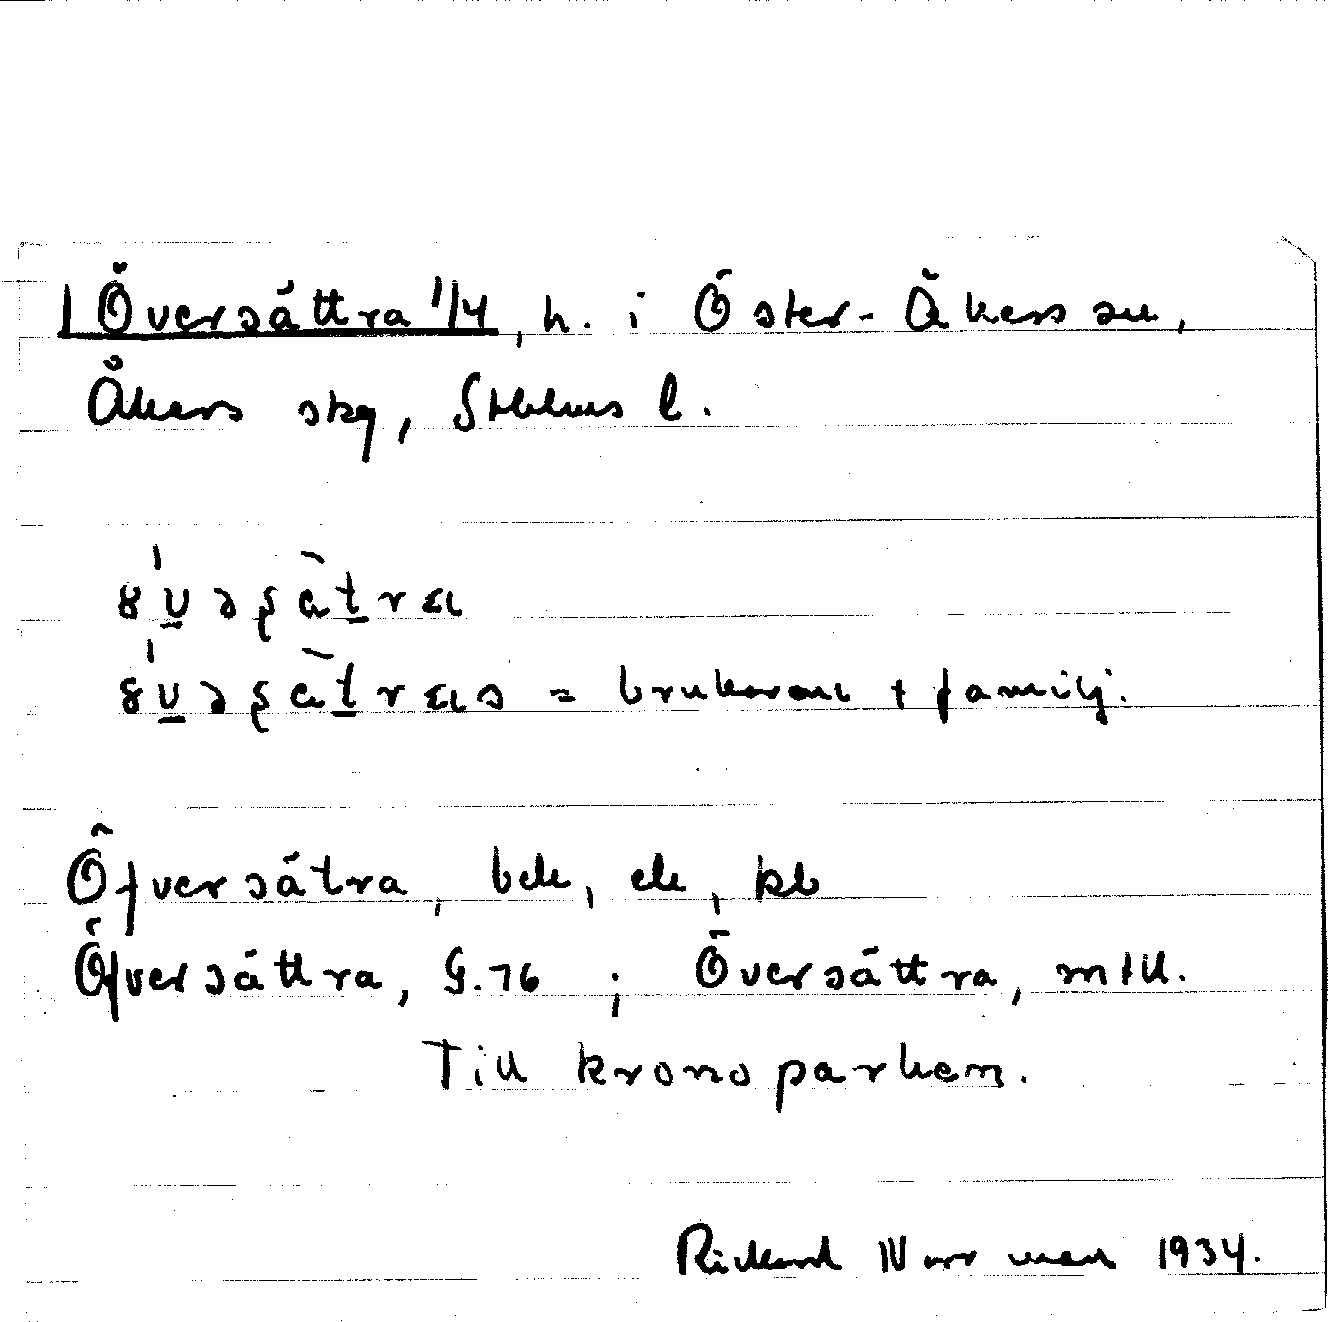 1 Översättra 1/4, h. i Öster-Åkers sn,
Åkers skg, Sthlms l.
= brukaren + familj.
Öfversätra, bek, ek, kb
Öfversättra, G. 76 ; Översättra, mtll.
Till kronoparken.
Rickard Norrman 1934.